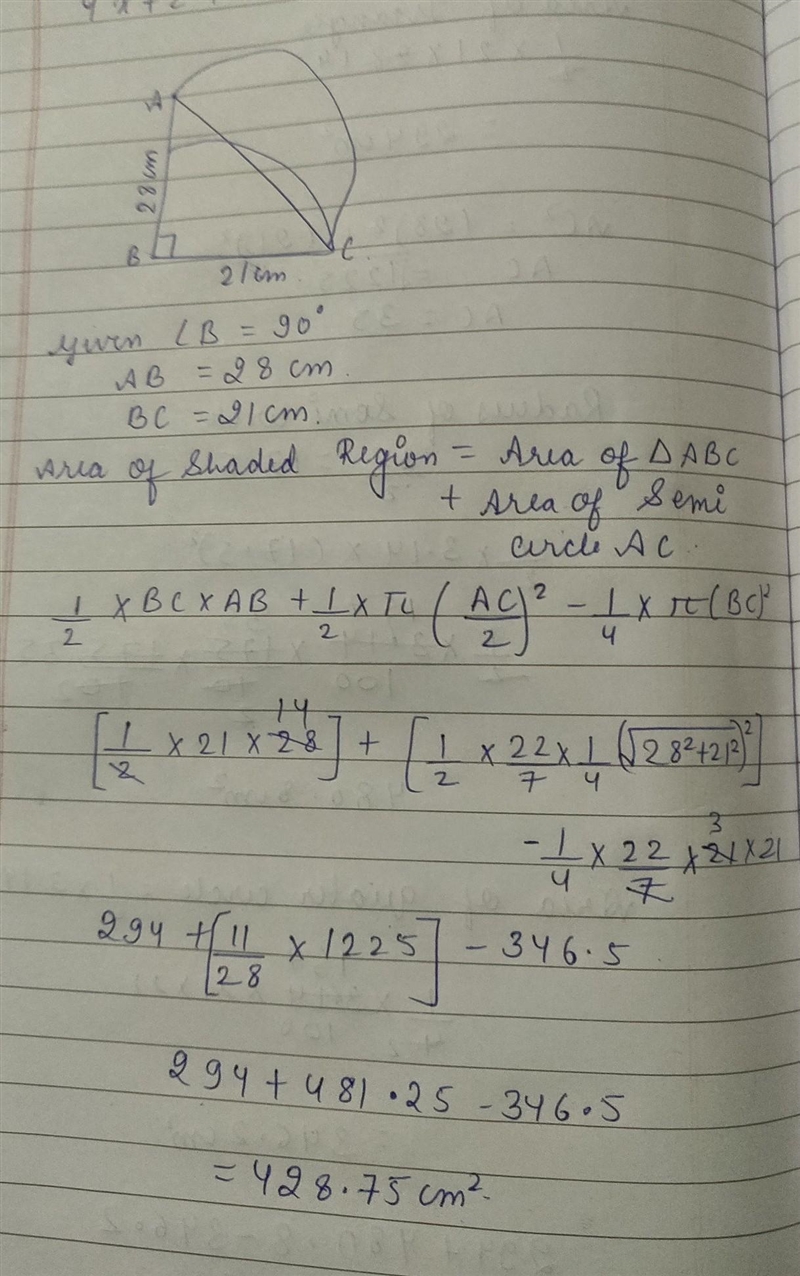 A
28cm
B
C
21cm
Given ∠B = 90°
AB = 28 cm.
BC = 21cm.
Area of Shaded Region = Area of ΔABC
+ Area of Semi
circle AC.
1/2 × BC × AB + 1/2 × π (AC/2)² - 1/4 × π(BC)²
14
[1/2 × 21 × 28] + [1/2 × 22/7 × 1/4 (√28²+21²)²]
3
- 1/4 × 22/7 × 21 × 21
294 + [11/28 × 1225] - 346.5
294 + 481.25 - 346.5
= 428.75 cm².